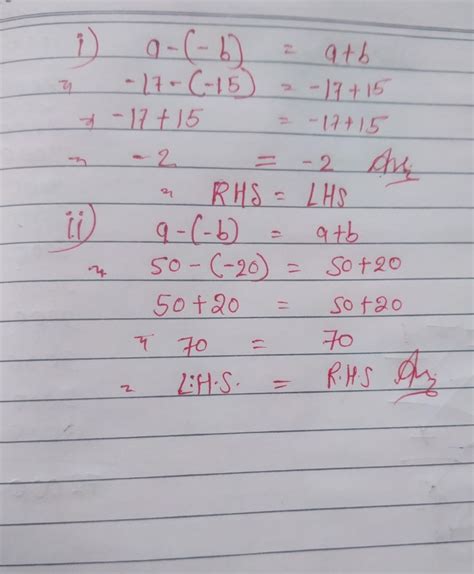 i) a-(-b) = a+b
⇒ -17-(-15) = -17+15
⇒ -17+15 = -17+15
⇒ -2 = -2 Ans
⇒ RHS = LHS
ii) a-(-b) = a+b
⇒ 50-(-20) = 50+20
50+20 = 50+20
⇒ 70 = 70
⇒ L.H.S. = R.H.S Ans